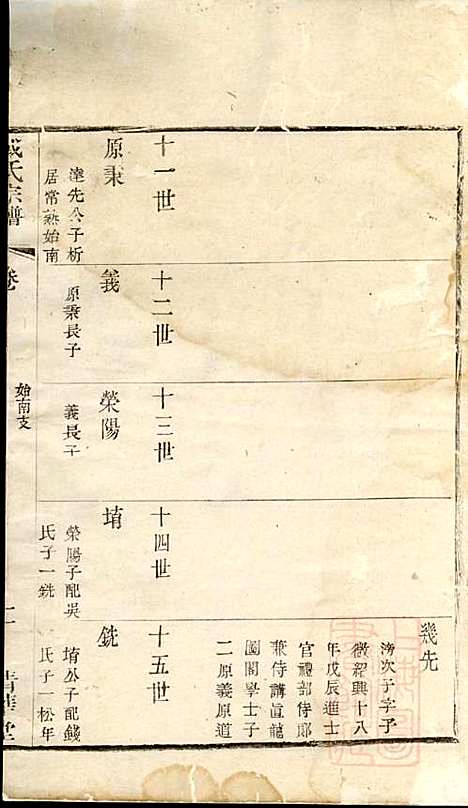 幾先
滂次子字予
微紹興十八
年戊辰進士
官禮部侍郎
兼侍講直龍
圖閣學士子
二原義原道
十一世
原秉
逵先公子析
居常熟始南
十二世
義
原秉長子
十三世
榮陽
義長子
十四世
堉
榮陽子配吳
氏子一銑
十五世
銑
堉公子配錢
氏子一松年
氏宗譜
卷
始南支
堂